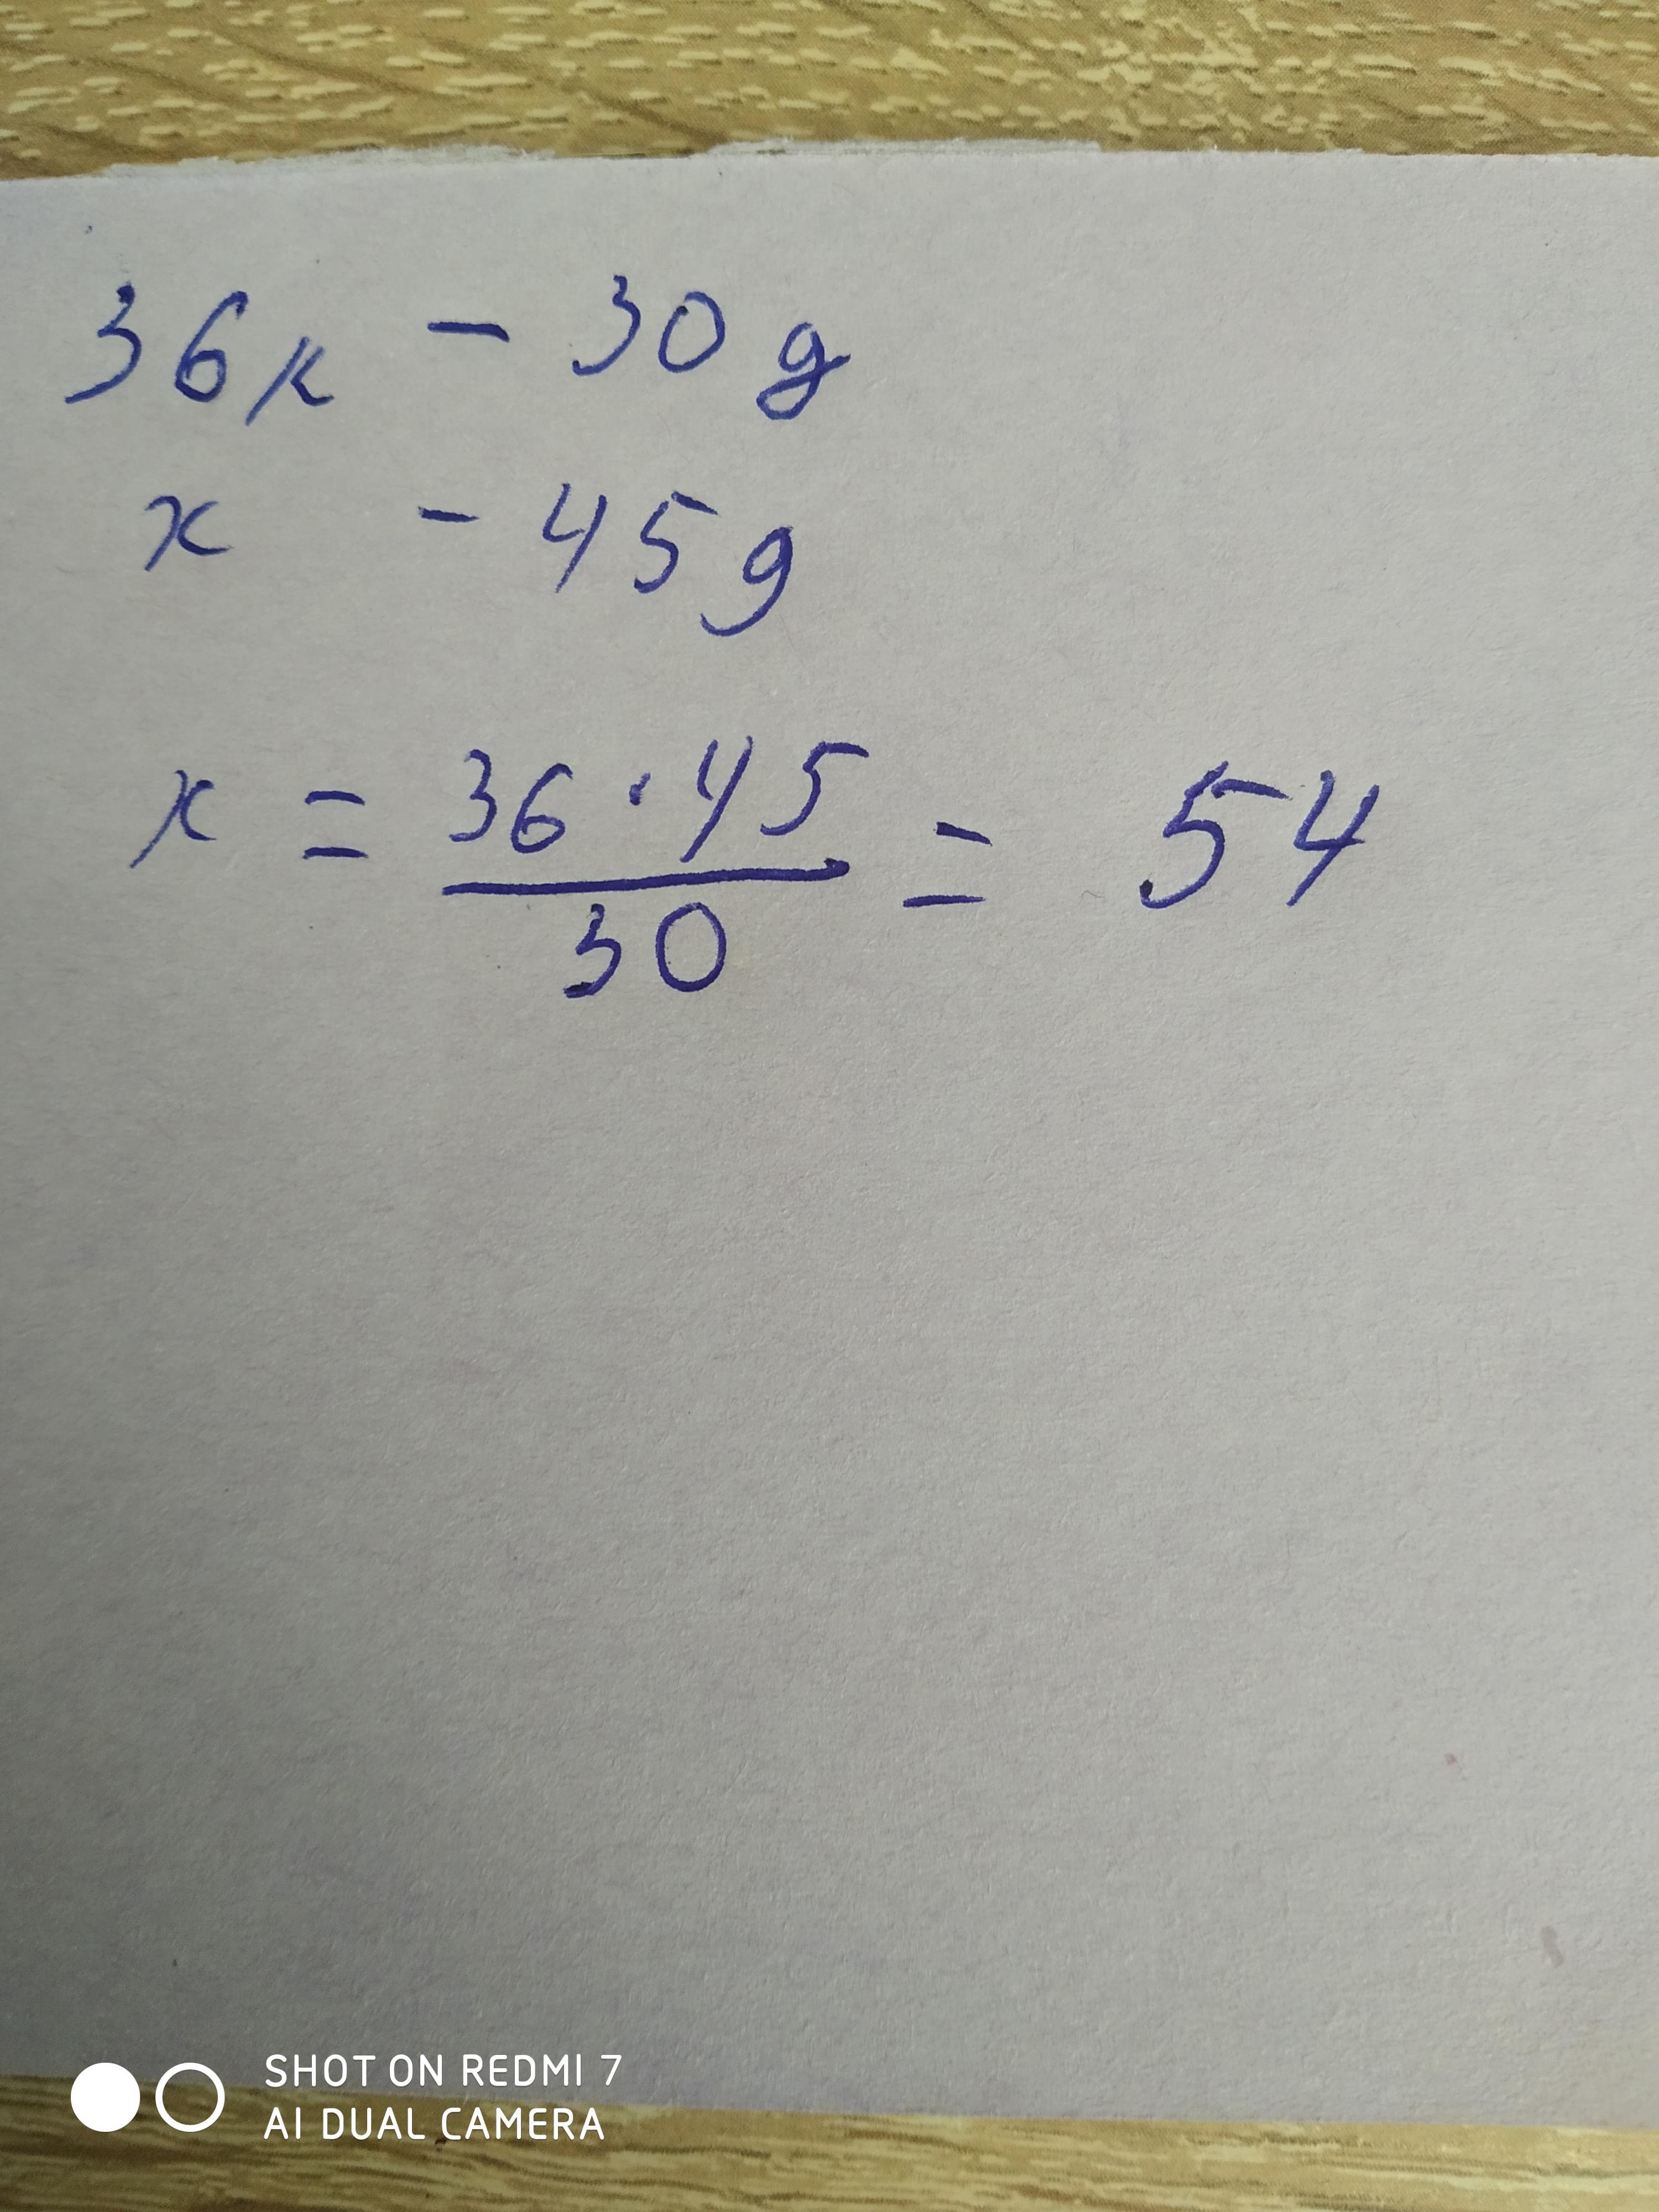 36к - 30g
x - 45g
x = 36·45 / 30 = 54
SHOT ON REDMI 7
AI DUAL CAMERA